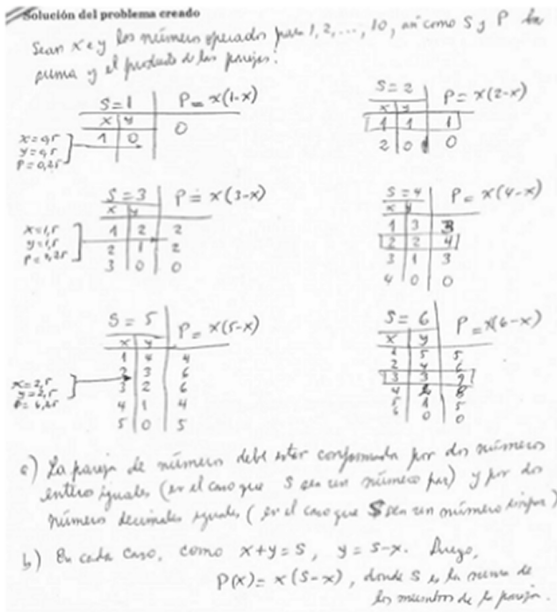 Solución del problema creado
Sean x e y los números operados para 1, 2, ..., 10, así como S y P la
suma y el producto de las parejas:
S=1 P= x(1-x)
x y
1 0 0
x=0,5
y=0,5
P=0,25
S=2 P= x(2-x)
x y
1 1 1
2 0 0
S=3 P= x(3-x)
x y
1 2 2
2 1 2
3 0 0
x=1,5
y=1,5
S=4 P= x(4-x)
x y
1 3 3
2 2 4
3 1 3
4 0 0
S=5 P= x(5-x)
x y
1 4 4
2 3 6
3 2 6
4 1 4
5 0 5
x=2,5
y=2,5
P=6,25
S=6 P=x(6-x)
x y
1 5 5
2 4 6
3 3 9
4 2 8
5 1 5
6 0 0
a) La pareja de números debe estar conformada por dos números
enteros iguales (en el caso que S sea un número par) y por dos
números decimales iguales (en el caso que S sea un número impar)
b) En cada caso, como x+y=S, y=S-x. Luego,
P(x)= x(S-x), donde S es la suma de
los miembros de la pareja.